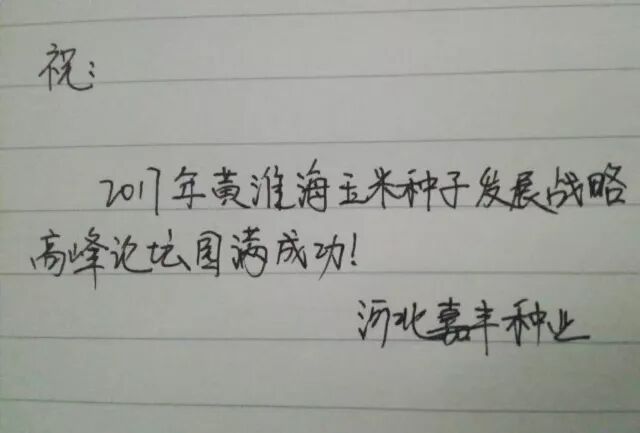 祝：
2017年黄淮海玉米种子发展战略
高峰论坛圆满成功！
河北嘉丰种业